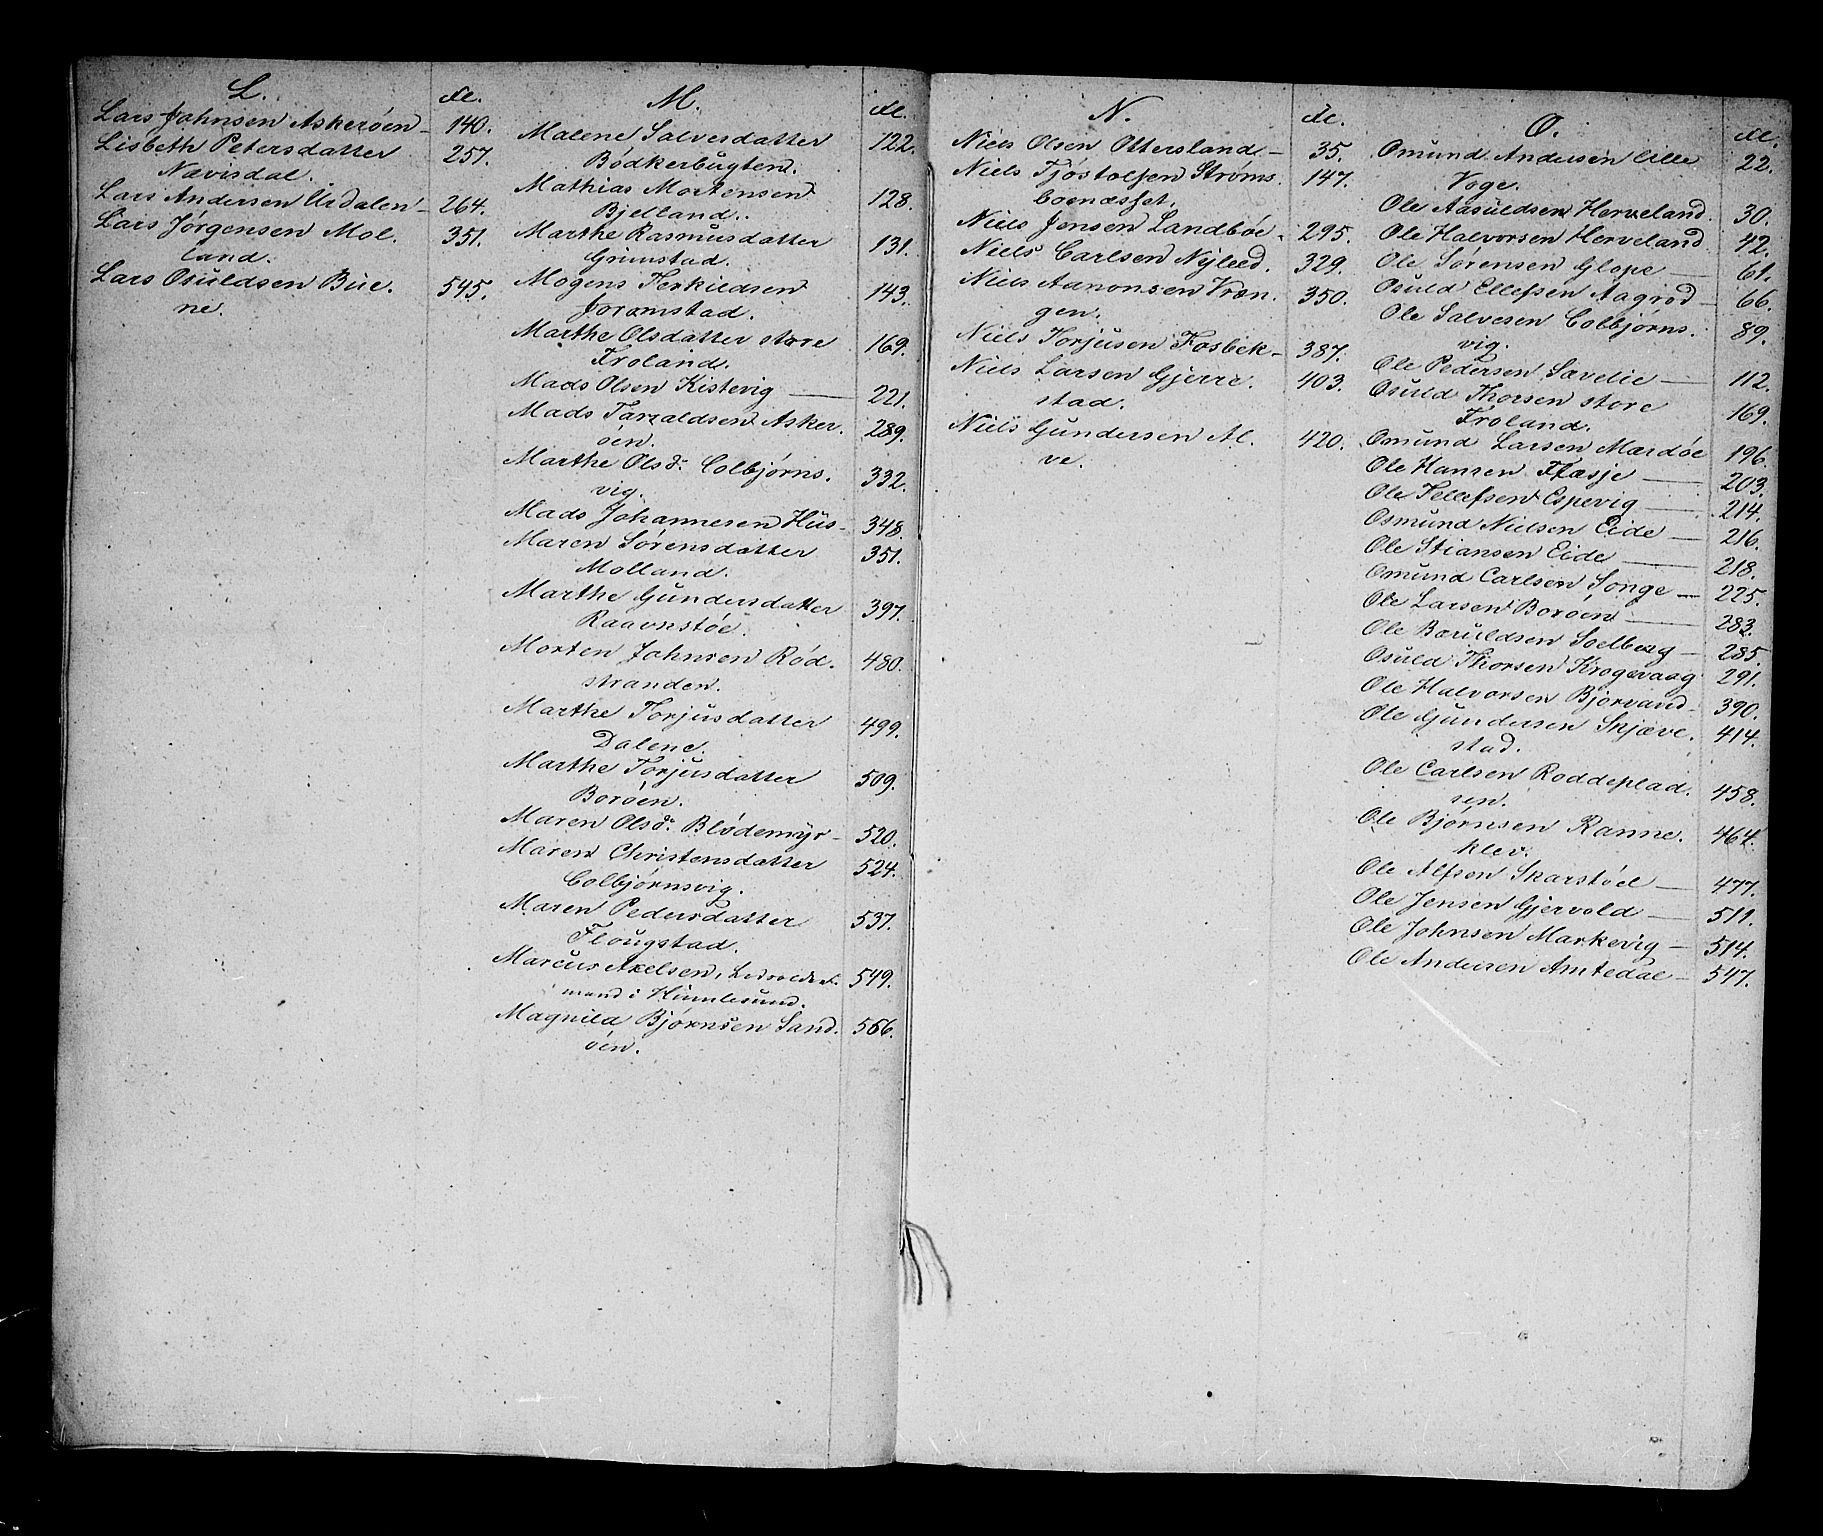 L.
Lars Johnsen Askerøen - 140.
Lisbeth Petersdatter 257.
Nævisdal.
Lars Andersen Urdalen - 264.
Lars Jørgensen Mol. 351.
land.
Lars Osuldsen Bue. 545.
ne.
M.
Malene Salvesdatter 122.
Bødkerbugten.
Mathias Mortensen 128.
Bjelland.
Marthe Rasmusdatter 131.
Grimstad.
Mogens Terkildsen 143.
Joromstad.
Marthe Olsdatter store 169.
Froland.
Mads Olsen Kistevig — 221.
Mads Tarzaldsen Asker. 289.
øen.
Marthe Olsd. Colbjørns. 332.
vig.
Mads Johannesen Hus- 348.
Maren Sørensdatter 351.
Molland.
Marthe Gundersdatter 397.
Raavnstøe.
Morten Johnsen Rød. 480.
stranden.
Marthe Torjusdatter 499.
Dalene.
Marthe Torjusdatter 509.
Borøen.
Maren Olsd. Blødemyr - 520.
Maren Christensdatter 524.
Colbjørnsvig.
Maren Pedersdatter 537.
Flougstad.
Marcus Axelsen, 549.
mand i
Magnild Bjørnsen Sand. 566.
øen.
N.
Niels Olsen Ottersland - 35.
Niels Tjøstolfsen Strøms 147.
boenæsset.
Niels Jensen Landbøe - 295.
Niels Carlsen Nyleed. 329.
Niels Aanonsen Vræn. 350.
gen.
Niels Torjusen Fosbek - 387.
Niels Larsen Gjerre. 403.
stad.
Niels Gundersen Al. 420.
ve.
O.
Omund Andersen lille 22.
Voge.
Ole Aasuldsen Herveland. 30.
Ole Halvorsen Herveland 42.
Ole Sørensen Glope — 61.
Osuld Ellefsen Aagrod - 66.
Ole Salvesen Colbjørns. 89.
vig.
Ole Pedersen Sævelie — 112.
Osuld Thorsen store 169.
Froland.
Omund Larsen Mærdøe 196.
Ole Hansen Flæsje — 203.
Ole Tellefsen Espevig — 214.
Osmund Nielsen Eide — 216.
Ole Stiansen Eide — 218.
Omund Carlsen Songe — 225.
Ole Larsen Borøen — 283.
Ole Baruldsen Soelberg — 285.
Osuld Thorsen Krogevaag 291.
Ole Halvorsen Bjorvand - 390.
Ole Gundersen Skjæve. 414.
stad.
Ole Carlsen Roddeplad. 458.
sen.
Ole Bjørnsen Ranne. 464.
klev.
Ole Alfsen Skarstøel — 477.
Ole Jensen Gjervold — 511.
Ole Johnsen Markevig — 514.
Ole Andersen Amtedal — 547.